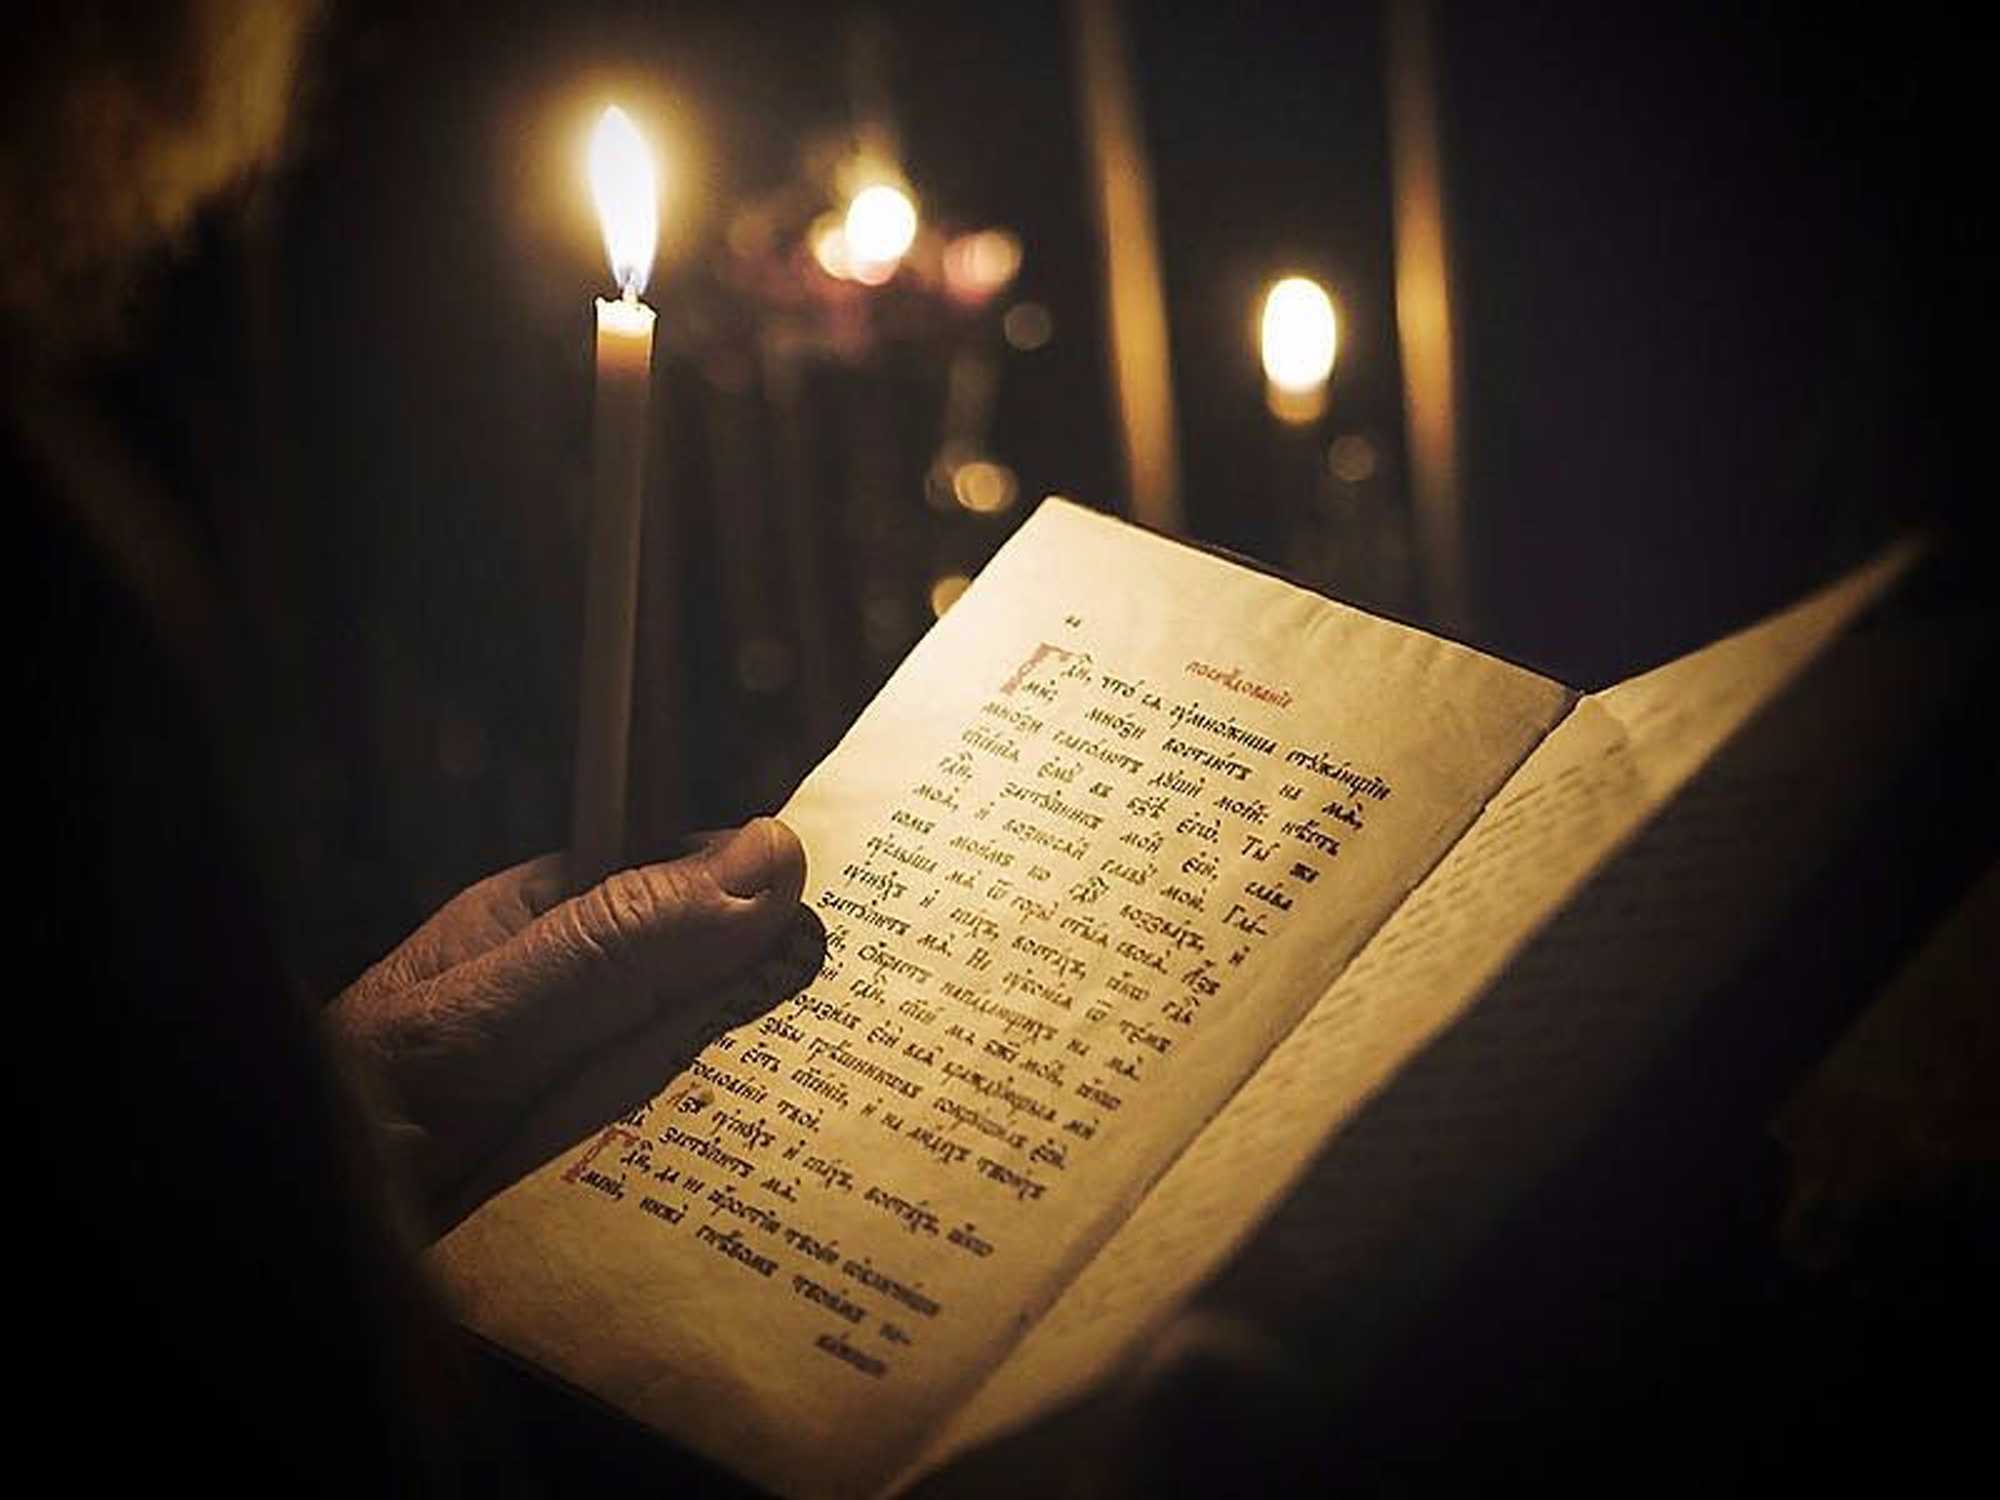 послѣ́дованїе
Гдⷭ҇и, что́ сѧ ᲂу҆мно́жиша стꙋжа́ющїи
ми; мно́зи востаю́тъ на мѧ̀,
мно́зи глаго́лютъ дꙋшѝ мое́й: нѣ́сть
сп҃се́нїѧ є҆мꙋ̀ въ бз҃ѣ є҆гѡ̀. Ты́ же
гдⷭ҇и, застꙋ́пникъ мо́й є҆сѝ, сла́ва
моѧ̀, и҆ возносѧ́й главꙋ̀ мою̀. Гла́-
сомъ мои́мъ ко гдⷭ҇ꙋ воззва́хъ, и҆
ᲂу҆слы́ша мѧ̀ ѿ горы̀ ст҃ы́ѧ своеѧ̀. А҆́зъ
ᲂу҆снꙋ́хъ и҆ спа́хъ, воста́хъ, ꙗ҆́кѡ гдⷭ҇ь
застꙋ́питъ мѧ̀. Не ᲂу҆бою́сѧ ѿ те́мъ
ѡ҆́крестъ напа́дающихъ на мѧ̀.
гдⷭ҇и, сп҃си́ мѧ бж҃е мо́й, ꙗ҆́кѡ
порази́лъ є҆сѝ всѧ̑ враждꙋ́ющыѧ мѝ
зꙋ́бы грѣ́шникѡвъ сокрꙋши́лъ є҆сѝ.
є҆́сть сп҃се́нїе, и҆ на лю́дехъ твои́хъ
гослове́нїе твоѐ.
А҆́зъ ᲂу҆снꙋ́хъ и҆ спа́хъ, воста́хъ, ꙗ҆́кѡ
застꙋ́питъ мѧ̀.
Гдⷭ҇и, да не ꙗ҆́ростїю твое́ю ѡ҆бличи́ши
менѐ, нижѐ гнѣ́вомъ твои́мъ на-
ка́жеши